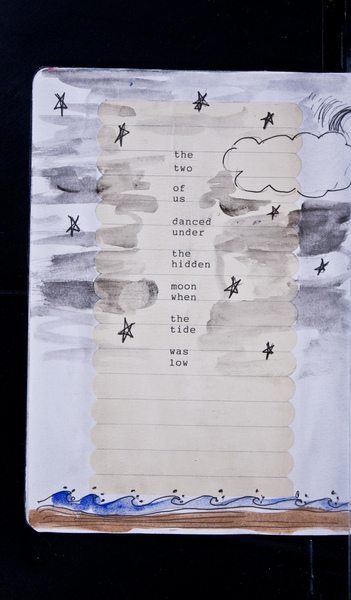 the
two
of
us
danced
under
the
hidden
moon
when
the
tide
was
low